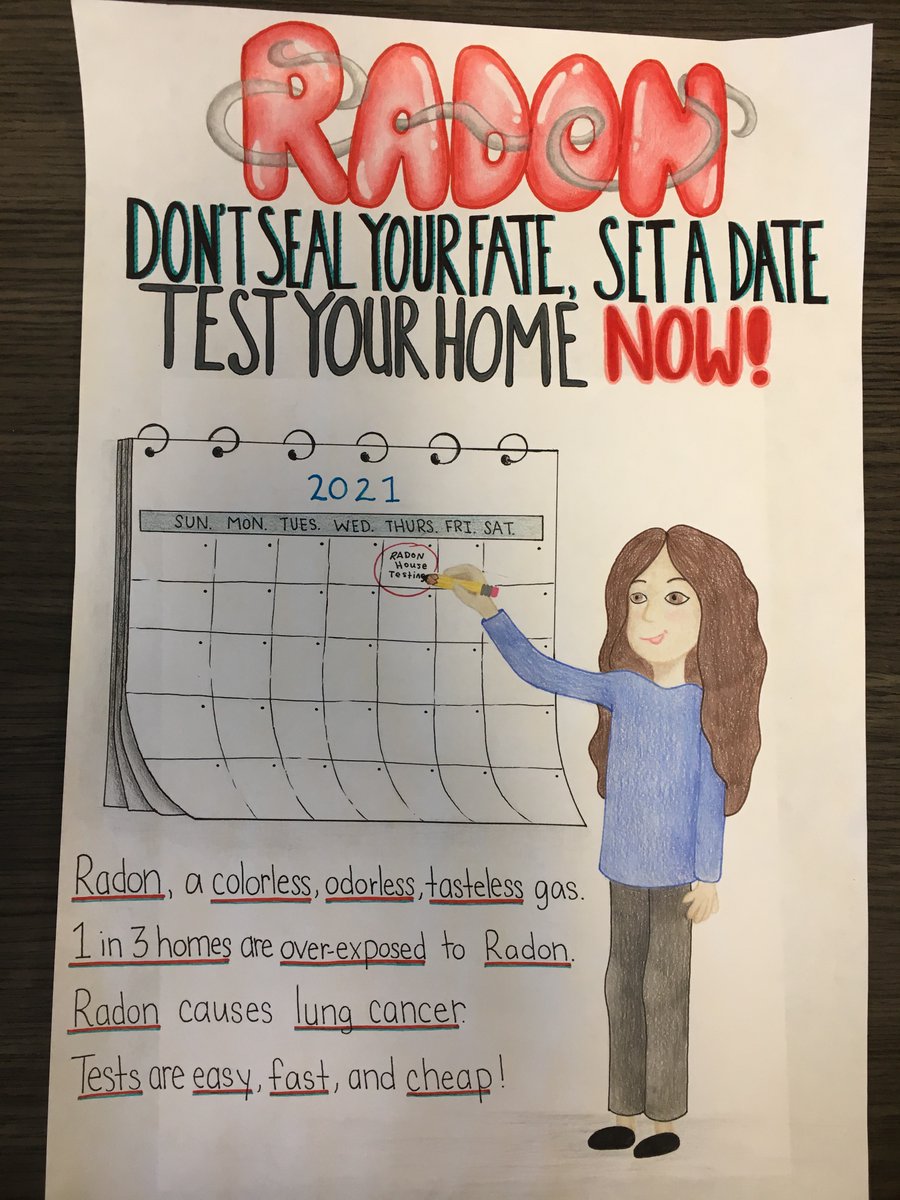 RADON
DON'T SEAL YOUR FATE, SET A DATE
TEST YOUR HOME NOW!
2021
SUN. MON. TUES. WED. THURS. FRI. SAT.
RADON
House
Testing
Radon, a colorless, odorless, tasteless gas.
1 in 3 homes are over-exposed to Radon.
Radon causes lung cancer.
Tests are easy, fast, and cheap!